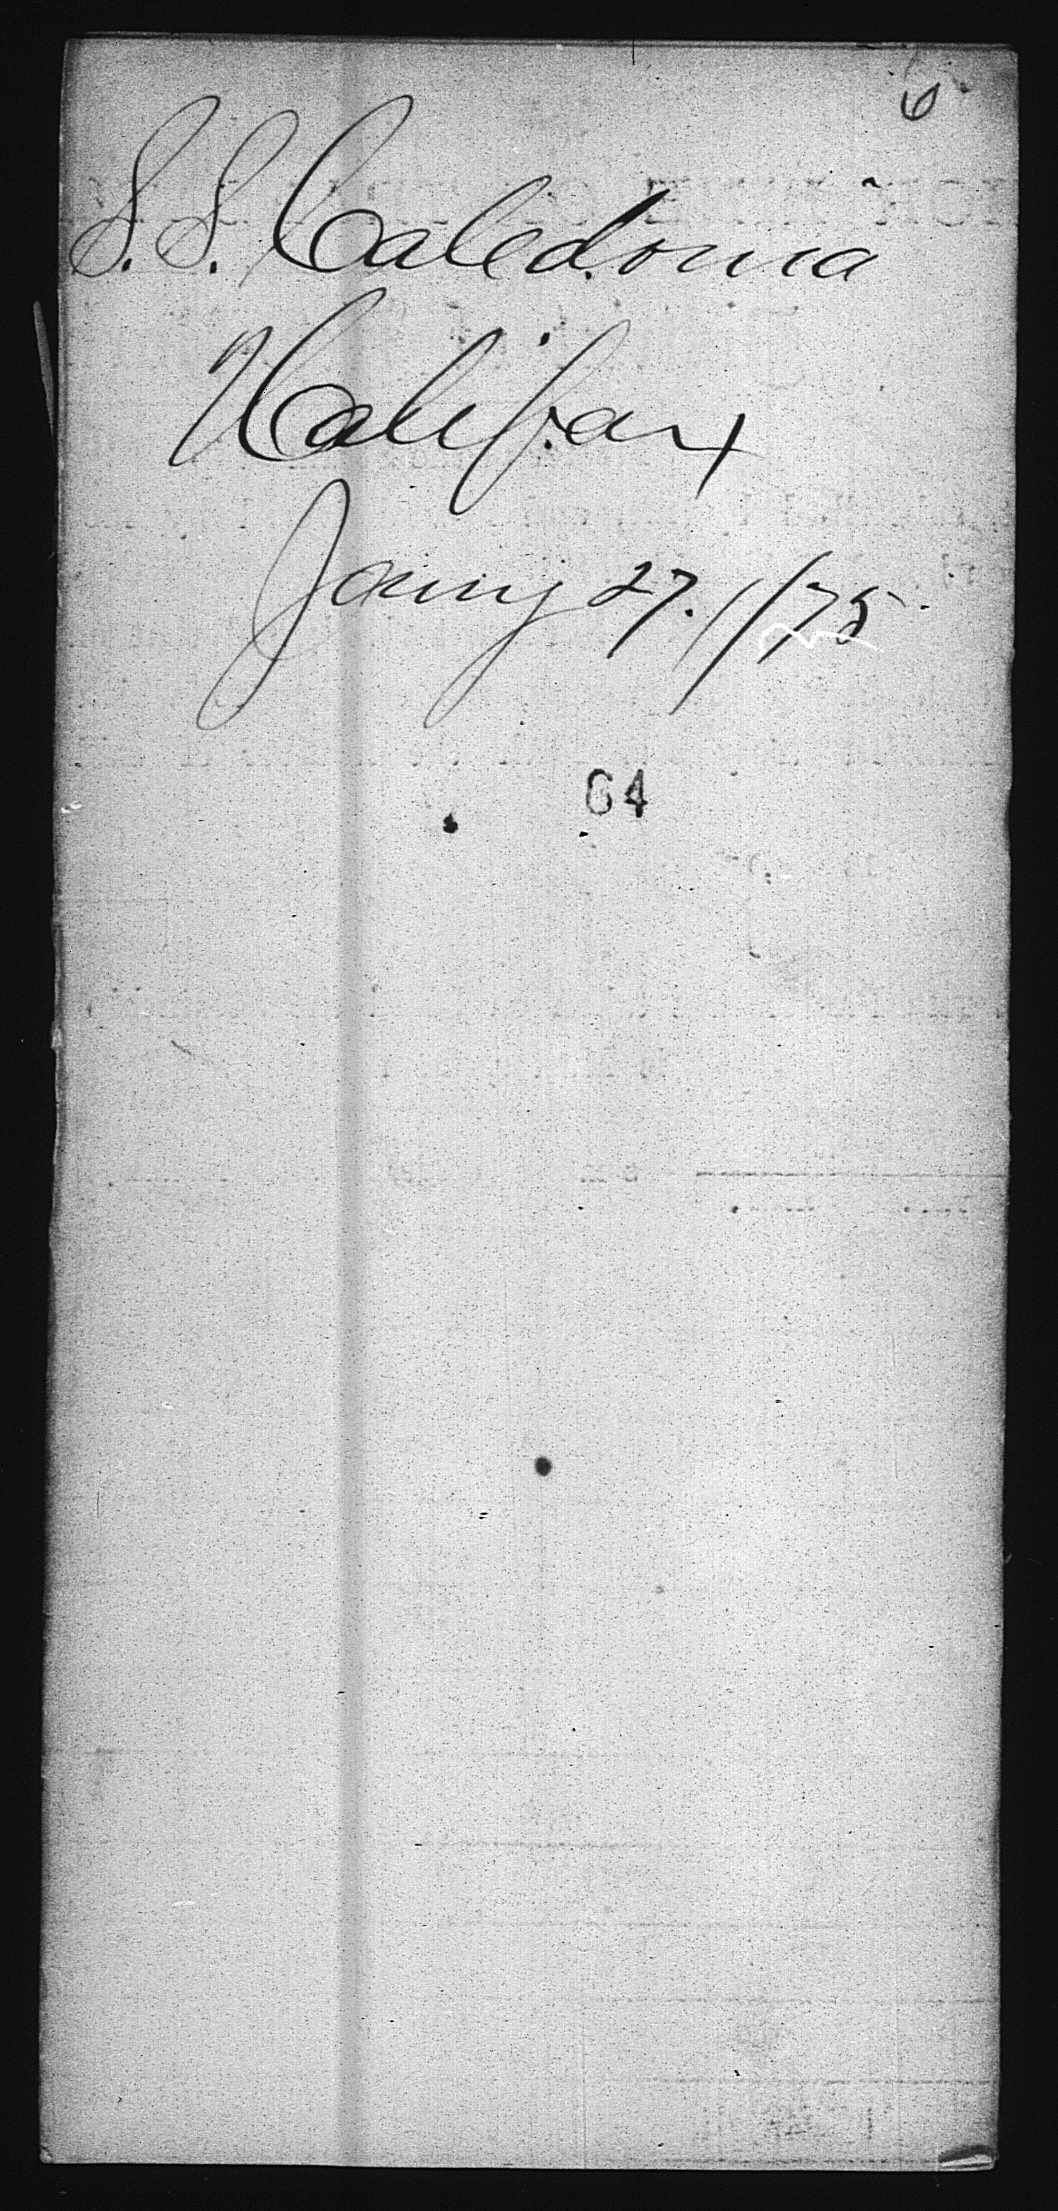 6
S.S. Caledonia
Halifax
Jany 27./75
64